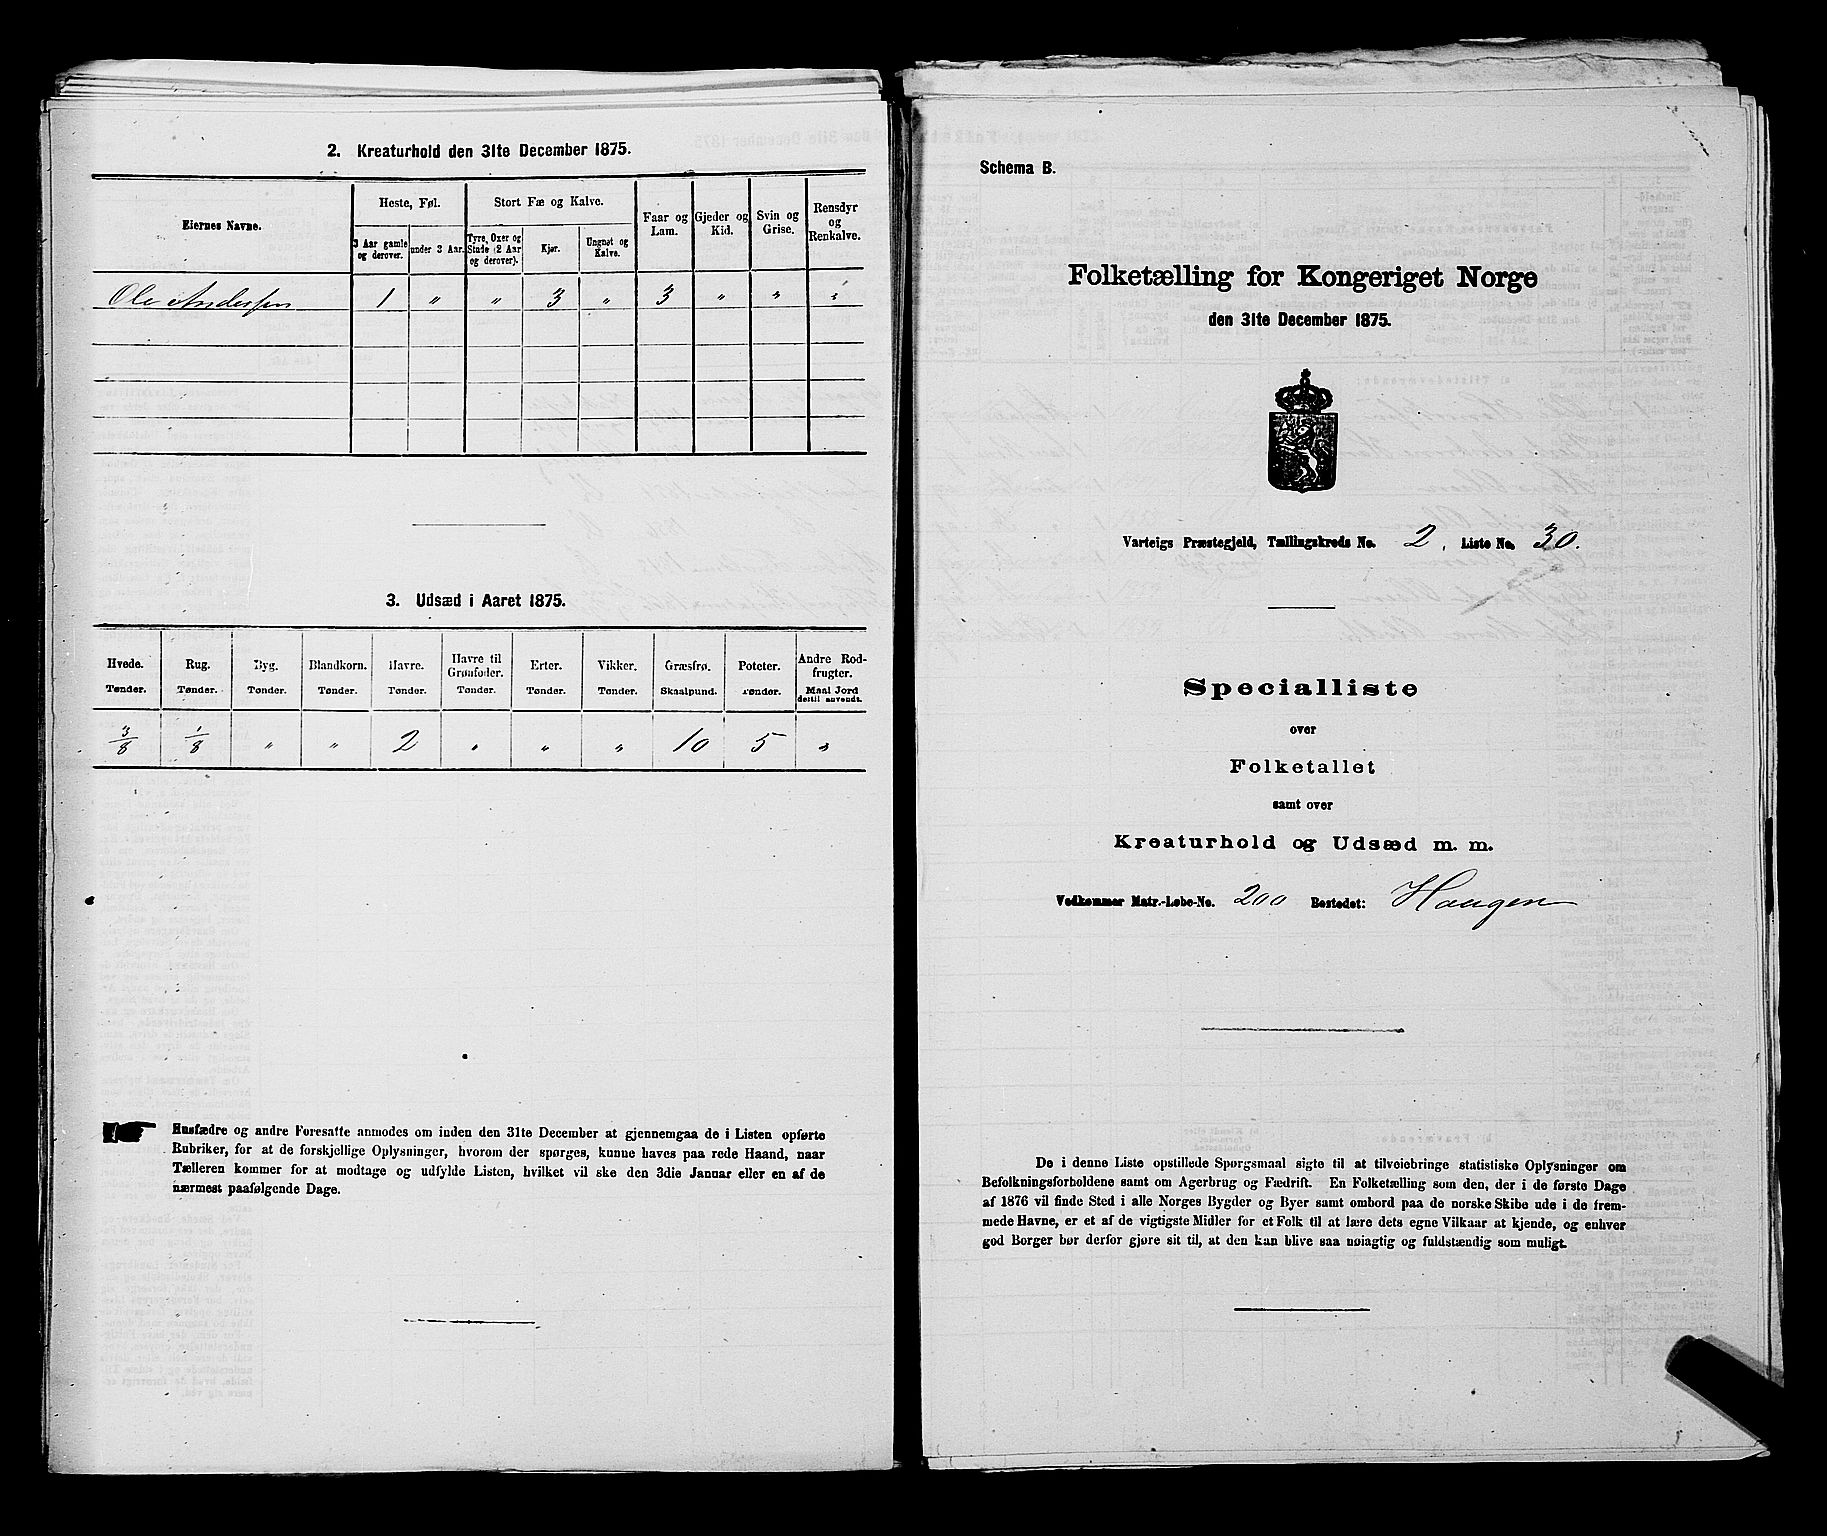 2. Kreaturhold den 31te December 1875.
Eiernes Navne.
Heste, Føl.
Stort Fæ og Kalve.
3 Aar gamle og derover.
under 3 Aar.
Tyre, Oxer og Stude (2 Aar og derover).
Kjør.
Ungnøt og Kalve.
Faar og Lam.
Gjeder og Kid.
Svin og Grise.
Rensdyr og Renkalve.
Ole Anderssen 1 " " 3 " 3 " " "
3. Udsæd i Aaret 1875.
Hvede. Rug. Byg. Blandkorn. Havre. Havre til Grønfoder. Erter. Vikker. Græsfrø. Poteter. Andre Rodfrugter.
Tønder. Tønder. Tønder. Tønder. Tønder. Tønder. Tønder. Tønder. Skaalpund. Tønder. Maal Jord dertil anvendt.
3/8 1/8 " " 2 " " " 10 5 "
Husfædre og andre Foresatte anmodes om inden den 31te December at gjennemgaa de i Listen opførte
Rubriker, for at de forskjellige Oplysninger, hvorom der spørges, kunne haves paa rede Haand, naar
Tælleren kommer for at modtage og udfylde Listen, hvilket vil ske den 3die Januar eller en af de
nærmest paafølgende Dage.
Schema B.
Folketælling for Kongeriget Norge
den 31te December 1875.
Varteigs Præstegjeld, Tællingskreds No. 2. Liste No. 30.
Specialliste
over
Folketallet
samt over
Kreaturhold og Udsæd m. m.
Vedkommer Matr.-Løbe-No. 200 Bostedet: Haugen
De i denne Liste opstillede Spørgsmaal sigte til at tilveiebringe statistiske Oplysninger om
Befolkningsforholdene samt om Agerbrug og Fædrift. En Folketælling som den, der i de første Dage
af 1876 vil finde Sted i alle Norges Bygder og Byer samt ombord paa de norske Skibe ude i de frem-
mede Havne, er et af de vigtigste Midler for et Folk til at lære dets egne Vilkaar at kjende, og enhver
god Borger bør derfor gjøre sit til, at den kan blive saa nøiagtig og fuldstændig som muligt.